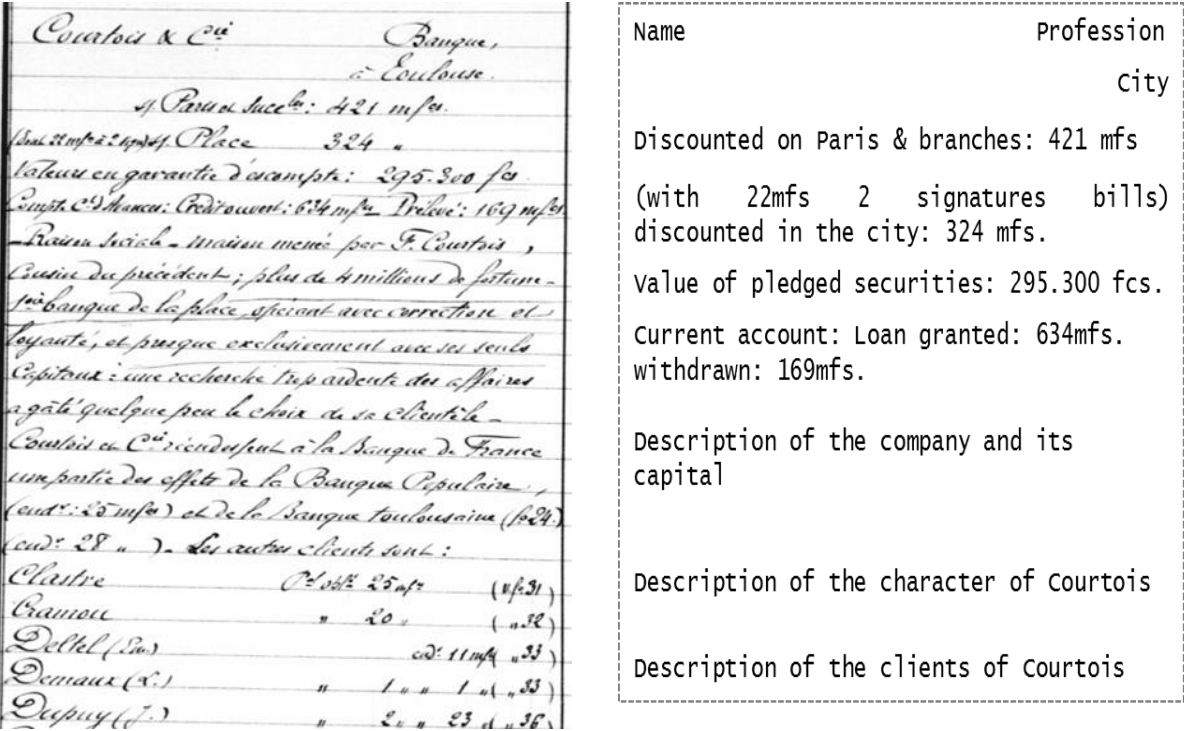 Courtois & Cie Banque,
à Toulouse.
s/ Paris et Succles: 421 mfcs.
(dont 22 mfcs à 2 sign) s/ Place 324 "
Valeurs en garantie d'escompte: 295.300 fcs
Compte Ct d'Avances: Crédit ouvert: 634 mfcs Prélevé: 169 mfcs
_ Raison sociale _ maison menée par F. Courtois,
Cousin du précédent; plus de 4 millions de fortune _
1ère banque de la place, opérant avec correction et
loyauté, et presque exclusivement avec ses seuls
Capitaux: une recherche trop ardente des affaires
a gâté quelque peu le choix de sa clientèle _
Courtois et Cie réendossent à la Banque de France
une partie des effets de la Banque Populaire,
(endt: 25 mfcs) et de la Banque toulousaine (fo 24.)
(endt: 28 " ). Les autres clients sont:
Clastre 25 mfcs (v. fo 31)
Cramou " 20 " ( " 32 )
Deltel (Em.) endt 11 mfcs ( " 33 )
Demaux (L.) " 1 " " 1 " ( " 33 )
Dupuy (J.) " 2 " " 23 " ( " 36 )
Name Profession
City
Discounted on Paris & branches: 421 mfs
(with 22mfs 2 signatures bills)
discounted in the city: 324 mfs.
Value of pledged securities: 295.300 fcs.
Current account: Loan granted: 634mfs.
withdrawn: 169mfs.
Description of the company and its
capital
Description of the character of Courtois
Description of the clients of Courtois